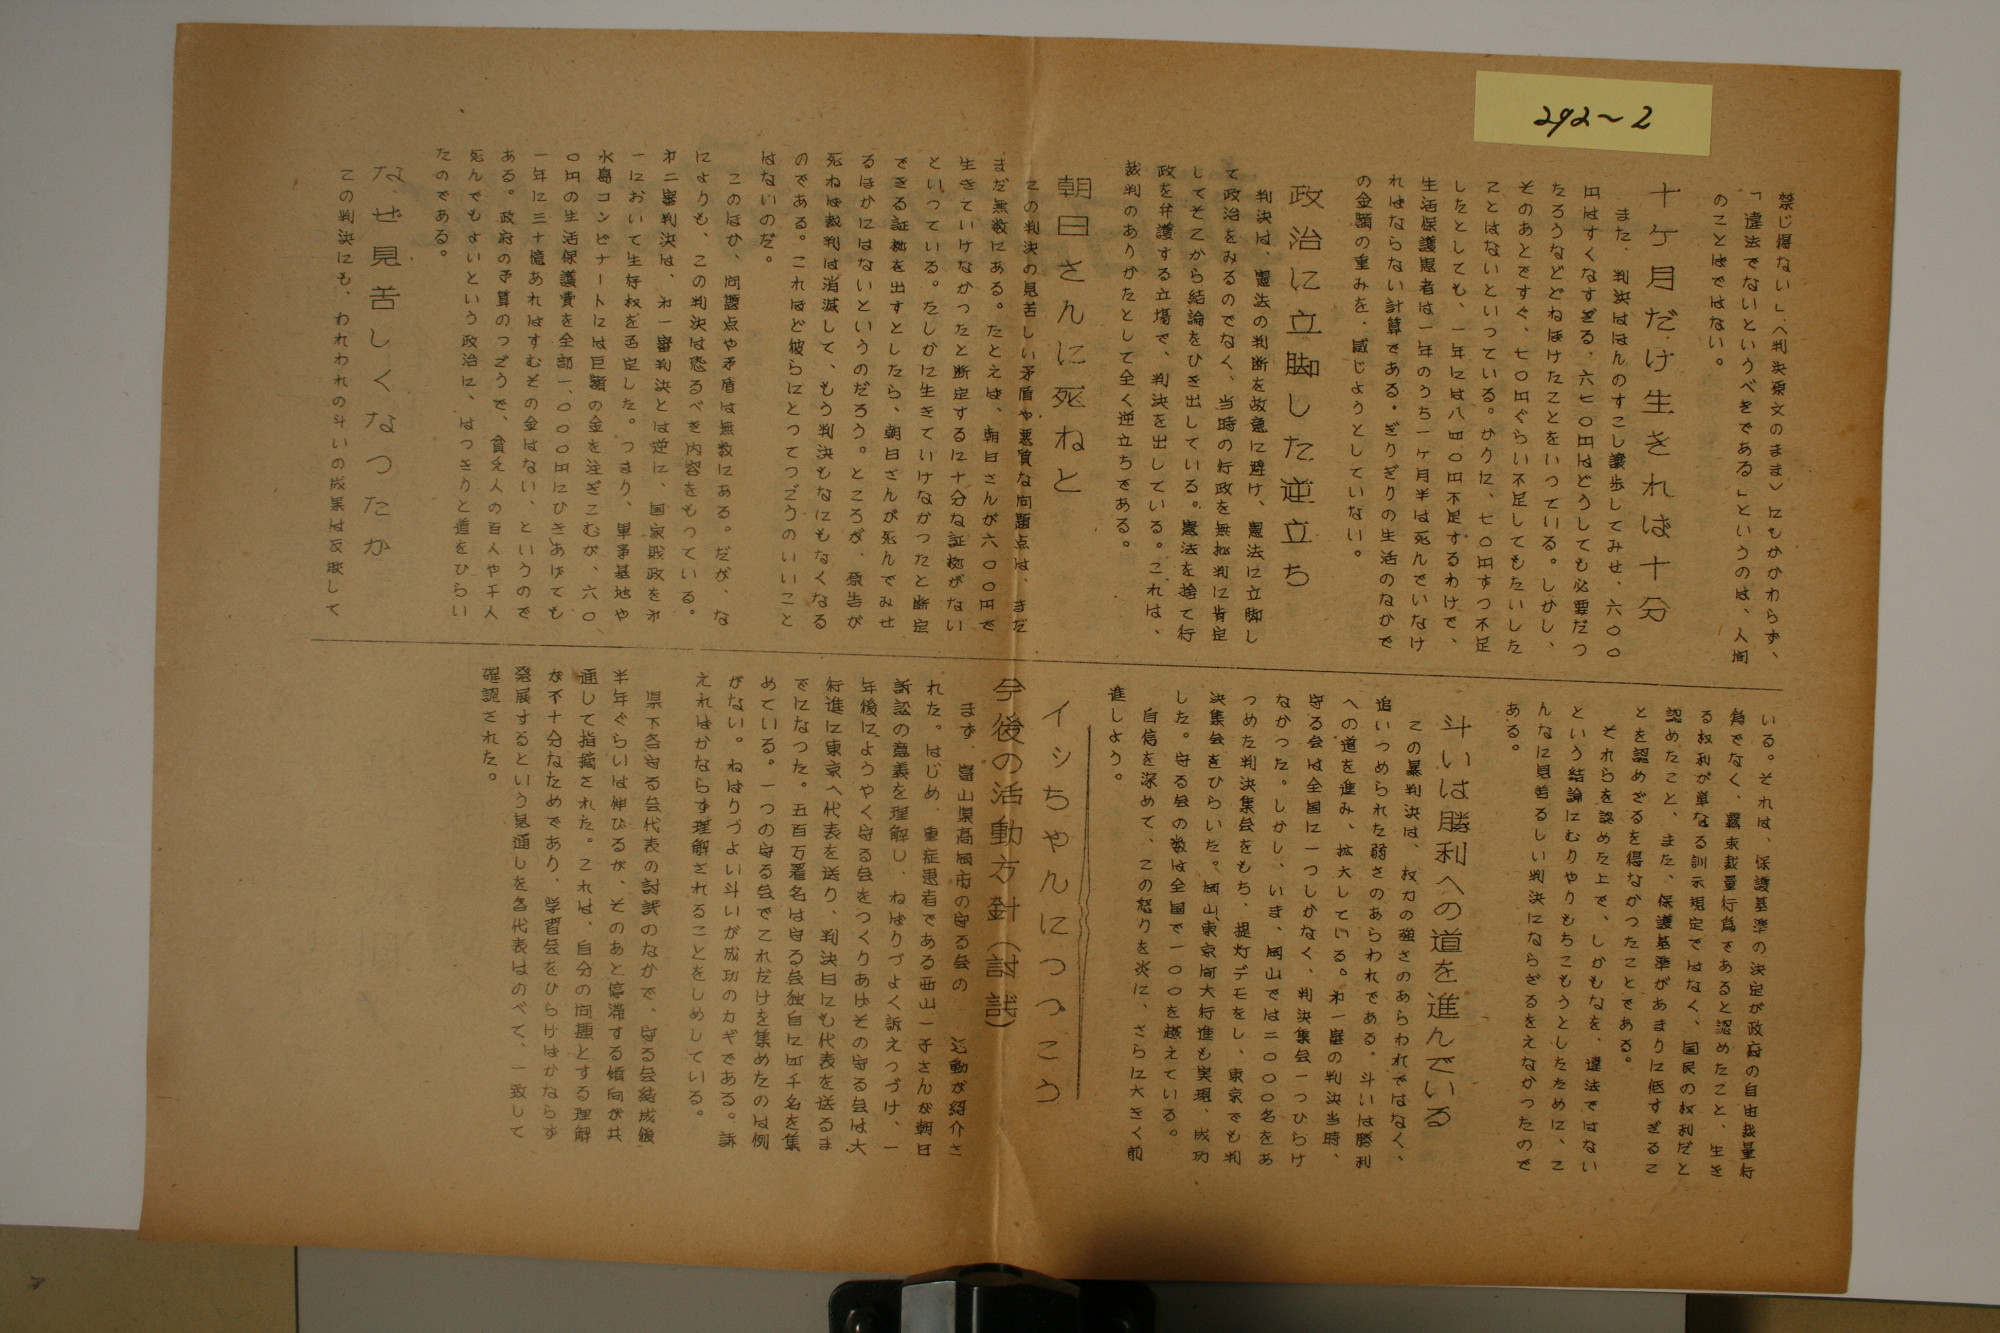 292~2
禁じ得ない」（判決原文のまま）にもかかわらず、
「違法でないというべきである」というのは、人間
のことばではない。
十ケ月だけ生きれば十分
また、判決はほんのすこし譲歩してみせ、六〇〇
円はすくなすぎる・六七〇円はどうしても必要だつ
たろうなどとねぼけたことをいつている。しかし、
そのあとですぐ、七〇円ぐらい不足してもたいした
ことはないといつている。かりに、七〇円ずつ不足
したとしても、一年には八四〇円不足するわけで、
生活保護患者は一年のうち一ヶ月半は死んでいなけ
ればならない計算である・ぎりぎりの生活のなかで
の金額の重みを・感じようとしていない。
政治に立脚した逆立ち
判決は、憲法の判断を故意に避け、憲法に立脚し
て政治をみるのでなく、当時の行政を無批判に肯定
してそこから結論をひき出している。憲法を捨て行
政を弁護する立場で、判決を出している。これは、
裁判のありかたとして全く逆立ちである。
朝日さんに死ねと
この判決の見苦しい矛盾や悪質な問題点は、まだ
まだ無数にある。たとえば、朝日さんが六〇〇円で
生きていけなかつたと断定するに十分な証拠がない
といつている。たしかに生きていけなかつたと断定
できる証拠を出すとしたら、朝日さんが死んでみせ
るほかにはないというのだろう。ところが、原告が
死ねば裁判は消滅して、もう判決もなにもなくなる
のである。これほど彼らにとつてつごうのいいこと
はないのだ。
このほか、問題点や矛盾は無数にある。だが、な
によりも、この判決は恐るべき内容をもつている。
才二審判決は、才一審判決とは逆に、国家財政を才
一において生存权を否定した。つまり、軍事基地や
水島コンビナートには巨額の金を注ぎこむが、六〇
〇円の生活保護費を全部一、〇〇〇円にひきあげても
一年に三十億あればすむその金はない、というので
ある。政府の予算のつごうで、貧乏人の百人や千人
死んでもよいという政治に、はつきりと道をひらい
たのである。
なぜ見苦しくなつたか
この判決にも、われわれの斗いの成果は反映して
いる。それは、保護基準の決定が政府の自由裁量行
為でなく、覊束裁量行為であると認めたこと、生き
る权利が単なる訓示規定ではなく、国民の权利だと
認めたこと、また、保護基準があまりに低すぎるこ
とを認めざるを得なかつたことである。
それらを認めた上で、しかもなを、違法ではない
という結論にむりやりもちこもうとしたために、こ
んなに見苦るしい判決にならざるをえなかつたので
ある。
斗いは勝利への道を進んでいる
この暴判決は、权力の強さのあらわれではなく、
追いつめられた弱さのあらわれである。斗いは勝利
への道を進み、拡大している。才一審の判決当時、
守る会は全国に一つしかなく、判決集会一つひらけ
なかつた。しかし、いま、岡山では二〇〇〇名をあ
つめた判決集会をもち、提灯デモをし、東京でも判
決集会をひらいた。岡山、東京間大行進も実現、成功
した。守る会の数は全国で一〇〇を越えている。
自信を深めて、この怒りを炎に、さらに大きく前
進しよう。
イッちやんにつづこう
今後の活動方針（討議）
まず、富山県高岡市の守る会の 活動が紹介さ
れた。はじめ、重症患者である西山一子さんが朝日
訴訟の意義を理解し、ねばりづよく訴えつづけ、一
年後にようやく守る会をつくりあげその守る会は大
行進に東京へ代表を送り、判決日にも代表を送るま
でになつた。五百万署名は守る会独自に四千名を集
めている。一つの守る会でこれだけを集めたのは例
がない。ねばりづよい斗いが成功のカギである。訴
えればかならず理解されることをしめしている。
県下各守る会代表の討議のなかで、守る会結成後
半年ぐらいは伸びるが、そのあと停滞する傾向が共
通して指摘された。これは、自分の問題とする理解
が不十分なためであり、学習会をひらけばかならず
発展するという見通しを各代表はのべて、一致して
確認された。